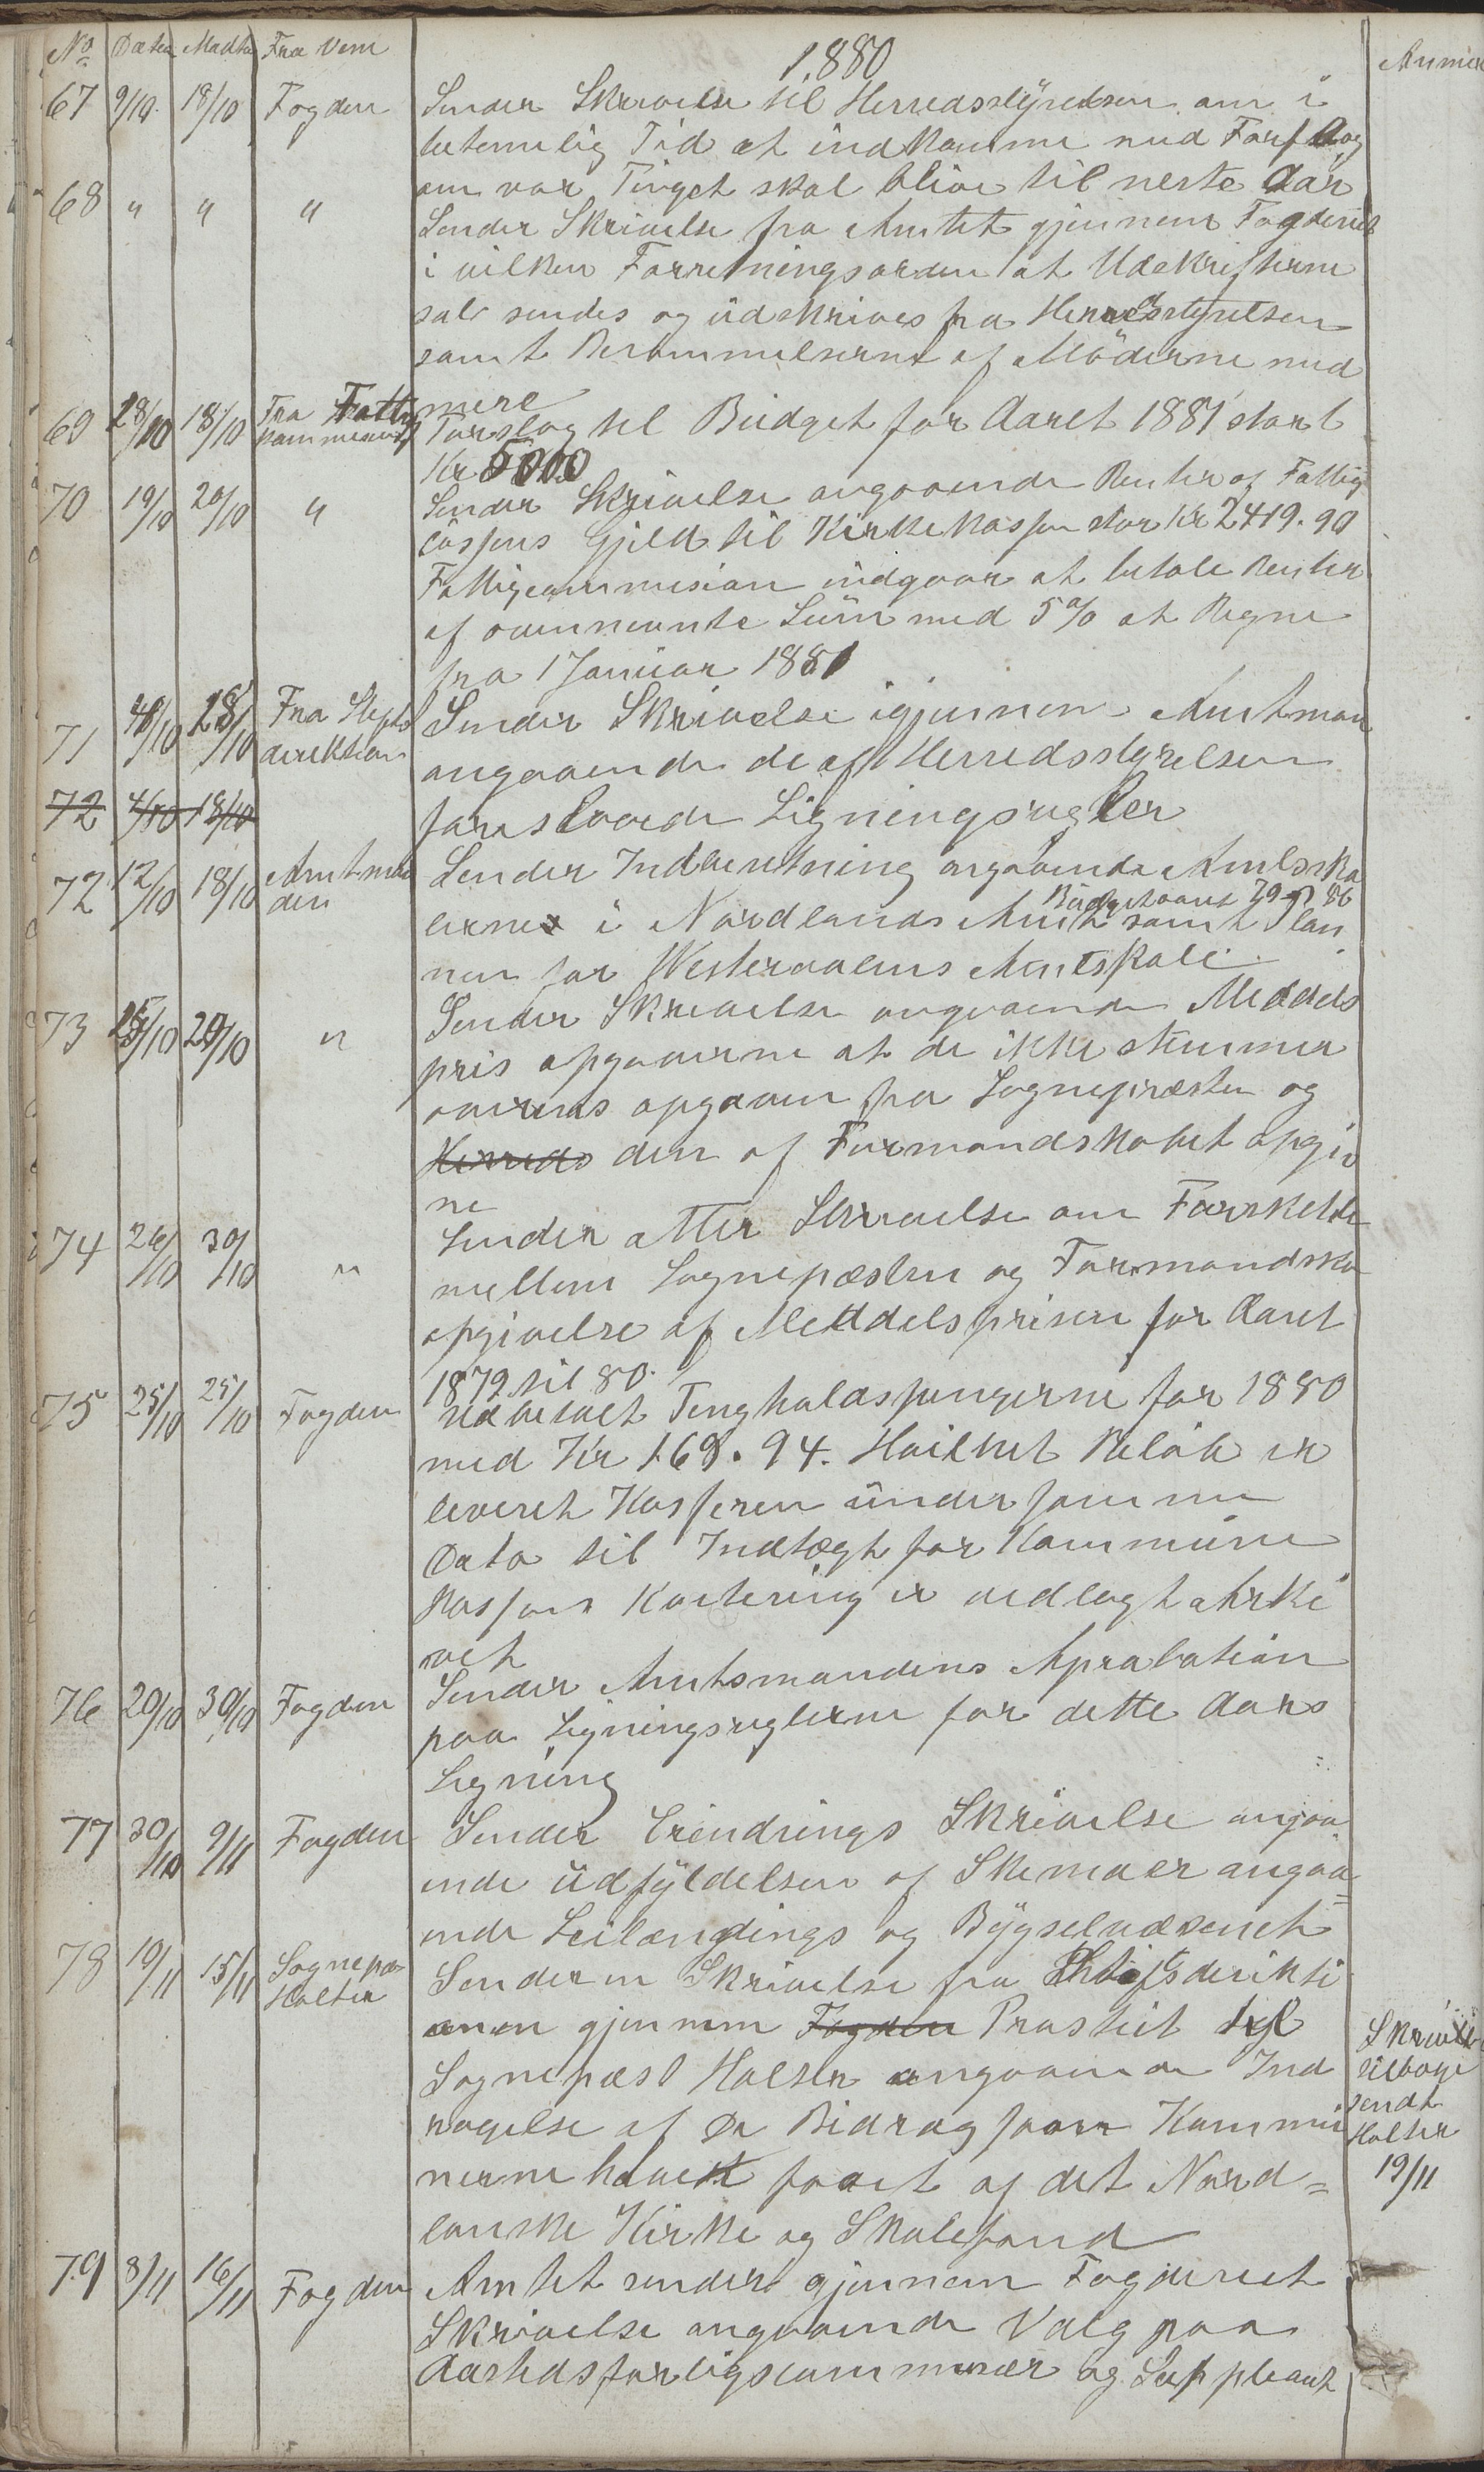 No Daten Modta Fra Vem
1880
Anmer
67 9/10 18/10 Fogden Sender Skrivelse til Herredsstÿrelsen om i
betemelig Tid at indkomme med Forslag
om vor Tinget skal blive til neste Aar
68 " " " Sender Skrivelse fra Amtet gjennem Fogderiet
i vilken Forretningsorden at Udskrifterne
sal sendes og udskrives fra Herredsstyrelsen
samt Berammelserne af Möderne med
mere
69 28/10 18/10 Fra Fattig kommisionen Forslag til Budget for Aaret 1881 stort
Kr 5000
70 19/10 20/10 " Sender Skrivelse angaaende Renter af Fattig
cassens Gjeld til Kirkekassen stor Kr 2419.90
Fattigcommision indgaar at betale Renter
af ovennevnte Sum med 5% at Regne
fra 1 Januar 1881
71 28/10 Fra Stifts direktion Sender Skrivelse igjennem Amtman
angaaende de af Herredsstyrelsen
72 4/10 18/10 foreslaaede Ligningsregler
72 12/10 18/10 Amtman den Sender Indberetning angaaende Amtssko
Budgetaaret 79 80
lerne i Nordlands Amt samt Plan
nen for Westeraalens Amtskole
73 25/10 29/10 " Sender Skrivelse angaaende Meddels
pris opgaverne at de ikke stemmer
overens opgaven fra Sognepræsten og
Herreds den af Formandskabet opgiv
ne
74 26/10 30/10 " Sender atter Skrivelse om Forskellen
mellem Sognepæsten og Formandska
opgivelse af Meddelsprisen for Aaret
1879 til 80.
75 25/10 25/10 Fogden Udbetalt Tingholdspengerne for 1880
med Kr 168.94. Hvilket Beløb er
leveret Kasseren under samme
Dato til Indtægt for Kommune
kassen Kvitering er vedlagt Arki
vet
76 20/10 30/10 Fogden Sender Amtsmandens Aprabation
paa Ligningsreglerne for dette Aars
Ligning
77 30/10 9/11 Fogden Sender Erindrings Skrivelse angaa
ende Udfÿldelsen af Skemaer angaa=
ende Leilændings og Bÿgselvæsenet
78 10/11 15/11 Sognepæ Holter Sender en Skrivelse fra Stiftsderikti
onen gjennem Fogden Prostiet til
Sognepæst Holter angaaende Ind
ragelse af De Bidrag som Kommu
nerne havet faaet af det Nord=
lanske Kirke og Skolefond
Skrivelse tilbage sendt Holter 19/11
79 8/11 16/11 Fogden Amtet sender gjennem Fogderiet
Skrivelse angaaende Valg paa
Aastedsforligscommisær og Suppleant